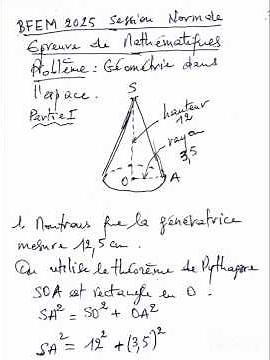 BFEM 2025 Session Normale
Epreuve de Mathématiques
Problème : Géométrie dans
l'espace.
Partie I
S
hauteur
12
rayon
3,5
O
A
1. Montrons que la génératrice
mesure 12,5 cm.
On utilise le théorème de Pythagore
SOA est rectangle en O.
SA² = SO² + OA²
SA² = 12² + (3,5)²